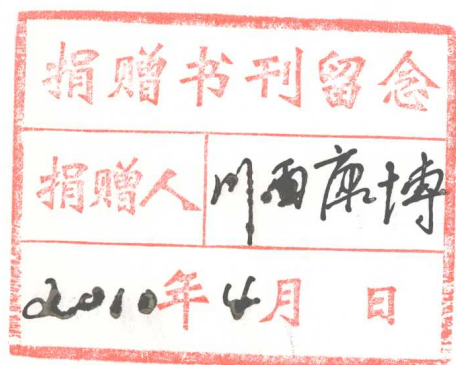 捐赠书刊留念
捐赠人 川西康博
2010年4月 日